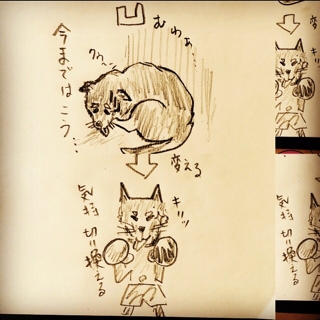 凹
むわぁ…
今まではこう…
クゥ〜
変える
キリッ
気持 切り換える
キリッ
気持 切り換える